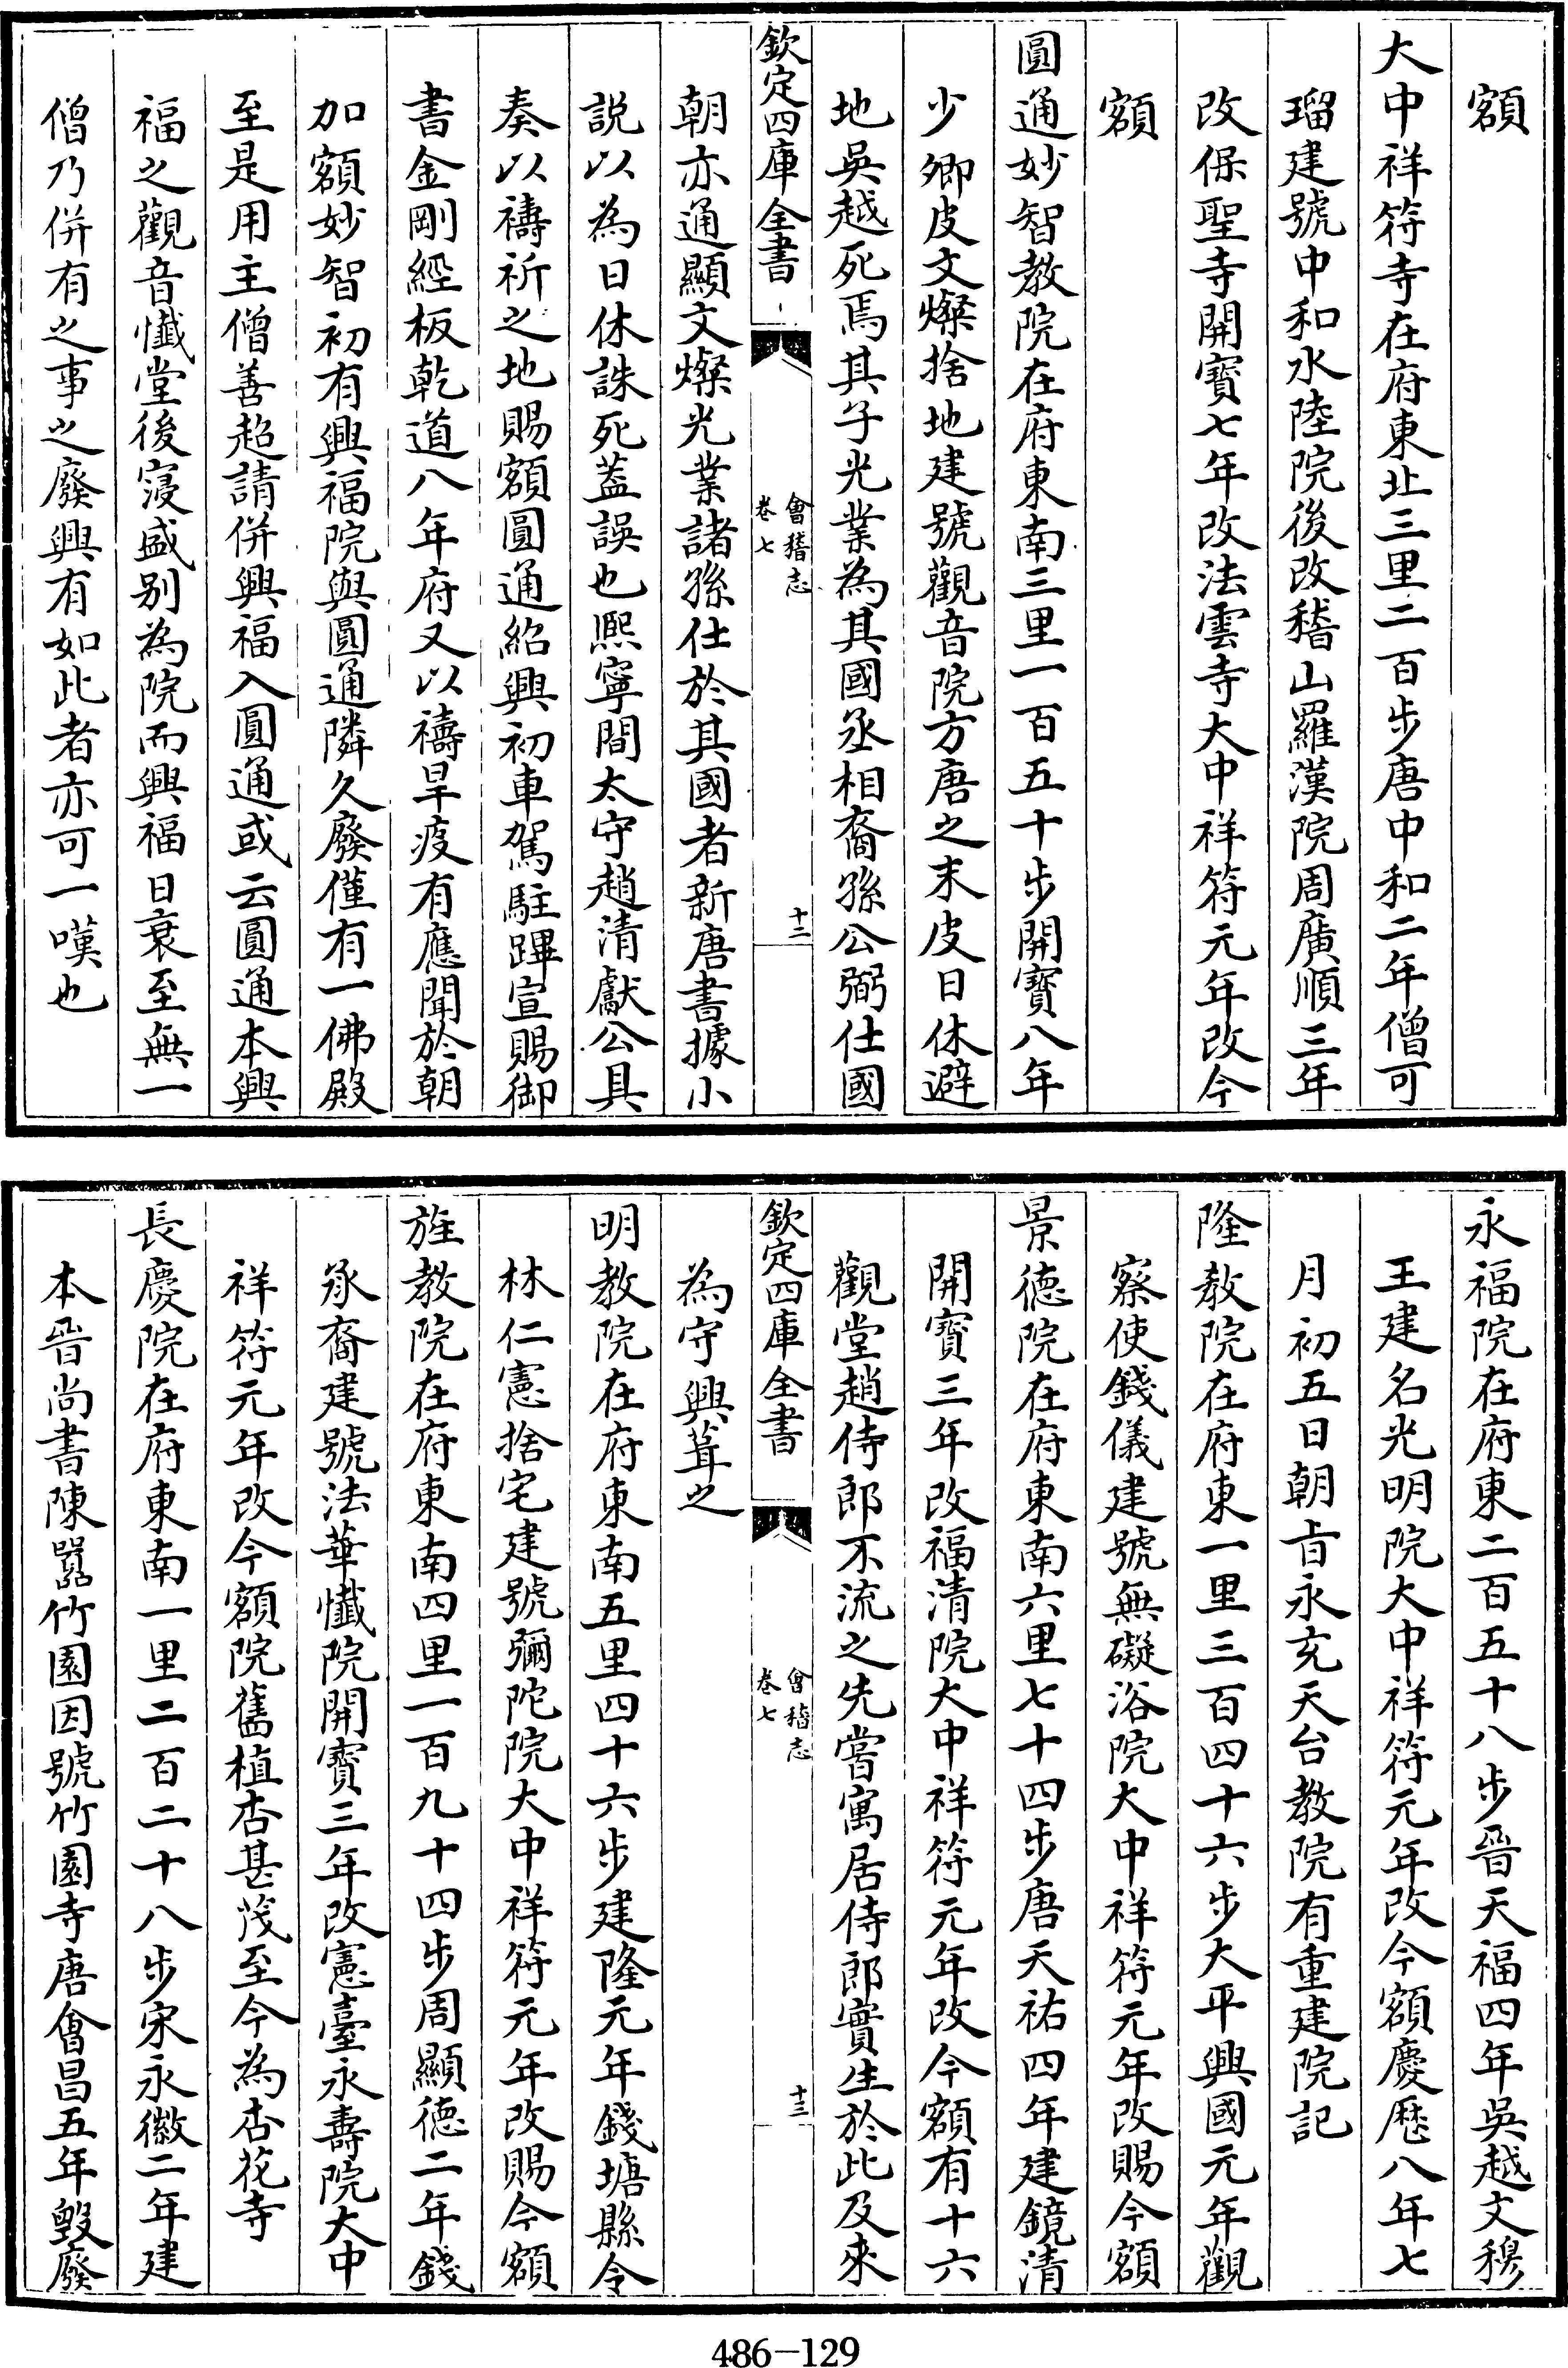 額
大中祥符寺在府東北三里二百步唐中和二年僧可
瑠建號中和水陸院後改稽山羅漢院周廣順三年
改保聖寺開寶七年改法雲寺大中祥符元年改今
額
圓通妙智教院在府東南三里一百五十步開寶八年
少卿皮文燦捨地建號觀音院方唐之末皮日休避
地吳越死焉其子光業為其國丞相裔孫公弼仕國
欽定四庫全書
會稽志
卷七
十二
朝亦通顯文燦光業諸孫仕於其國者新唐書據小
説以為日休誅死蓋誤也熙寧間太守趙清獻公具
奏以禱祈之地賜額圓通紹興初車駕駐蹕宣賜御
書金剛經板乾道八年府又以禱旱疫有應聞於朝
加額妙智初有興福院與圓通隣久廢僅有一佛殿
至是用主僧善超請併興福入圓通或云圓通本興
福之觀音懺堂後寖盛别為院而興福日衰至無一
僧乃併有之事之廢興有如此者亦可一嘆也
永福院在府東二百五十八步晉天福四年吳越文穆
王建名光明院大中祥符元年改今額慶歴八年七
月初五日朝㫖永充天台教院有重建院記
隆教院在府東一里三百四十六步大平興國元年觀
察使錢儀建號無礙浴院大中祥符元年改賜今額
景徳院在府東南六里七十四步唐天祐四年建鏡清
開寶三年改福清院大中祥符元年改今額有十六
觀堂趙侍郎不流之先嘗寓居侍郎實生於此及來
欽定四庫全書
會稽志
卷七
十三
為守興葺之
明教院在府東南五里四十六步建隆元年錢塘縣令
林仁憲捨宅建號彌陀院大中祥符元年改賜今額
旌教院在府東南四里一百九十四步周顯徳二年錢
承裔建號法華懺院開寶三年改憲臺永壽院大中
祥符元年改今額院舊植杏甚茂至今為杏花寺
長慶院在府東南一里二百二十八步宋永徽二年建
本晉尚書陳囂竹園因號竹園寺唐會昌五年毀廢
486-129